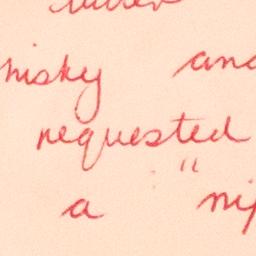 hisky and
requested
a "nip